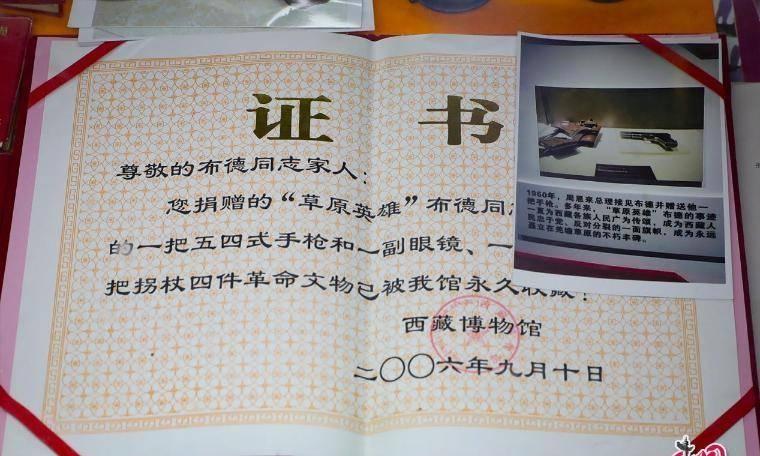 证书
尊敬的布德同志家人：
您捐赠的“草原英雄”布德同志
的一把五四式手枪和一副眼镜、一
把拐杖四件革命文物已被我馆永久收藏！
西藏博物馆
二〇〇六年九月十日
1960年，周恩来总理接见布德并赠送他一
把手枪。多年来，“草原英雄”布德的事迹
一直为西藏各族人民广为传颂，成为西藏人
民忠于党、反对分裂的一面旗帜，成为永远
矗立在羌塘草原的不朽丰碑。